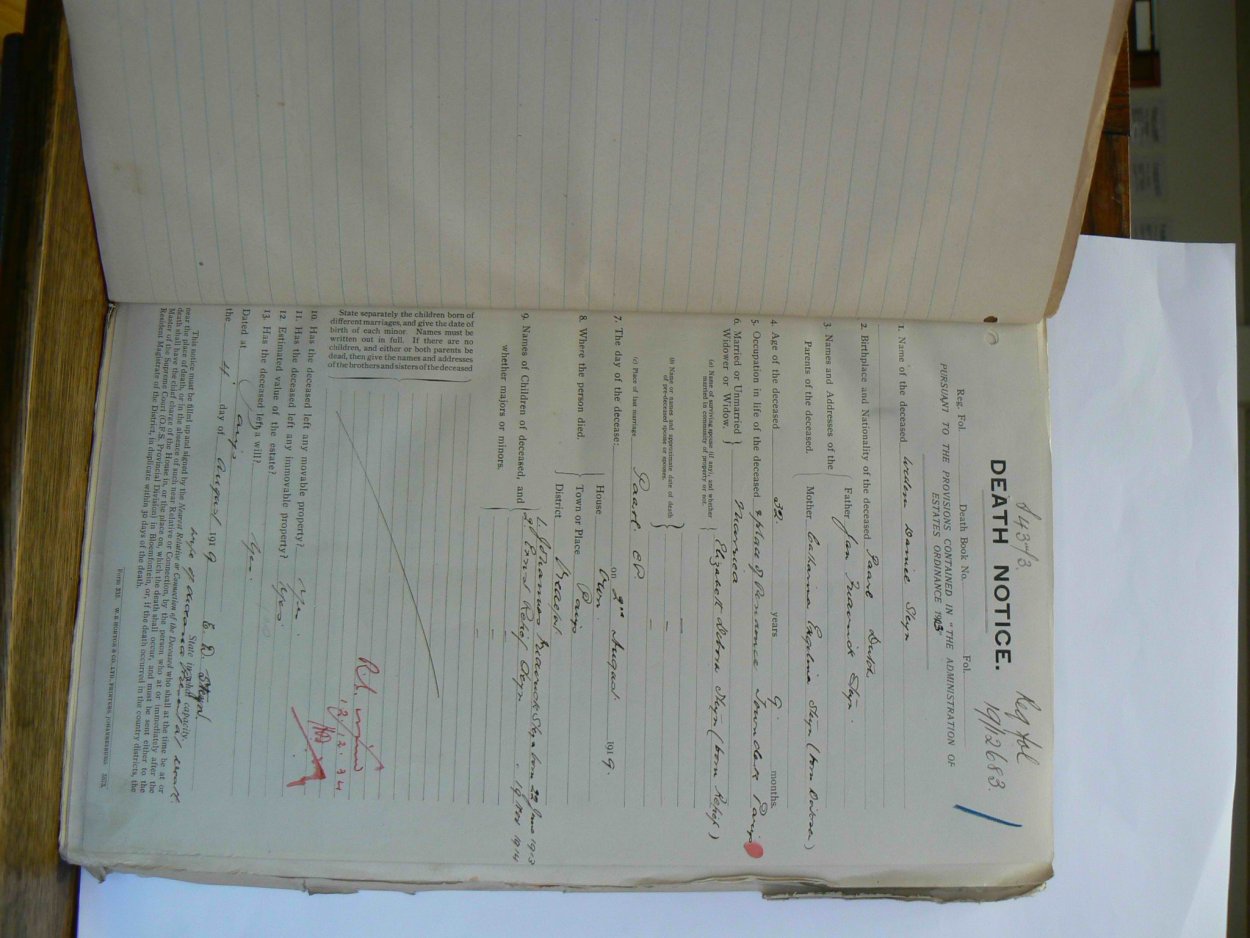 Reg fol
19/12683.
DEATH NOTICE.
Reg. Fol. Death Book No. Fol.
PURSUANT TO THE PROVISIONS CONTAINED IN "THE ADMINISTRATION OF
ESTATES ORDINANCE 1913"
1. Name of the deceased Willem Daniel Steyn
2. Birthplace and Nationality of the deceased Paarl Dutch
3. Names and Addresses of the Parents of the deceased. Father Jan Steyn
Mother Steyn (born )
4. Age of the deceased 32 years 9 months.
5. Occupation in life of the deceased & place of Town Clerk Parys
6. Married or Unmarried Widower or Widow. Married
(a) Name of surviving spouse (if any), and whether married in community of property or not. Elizabeth Debora Steyn (born Retief)
(b) Name or names and approximate date of death of pre-deceased spouse or spouses.
(c) Place of last marriage. Paarl CP
7. The day of the decease: on 2nd August 1919.
8. Where the person died. House
Town or Place Parys
District
9. Names of Children of deceased, and whether majors or minors. 1. Johannes Steyn born 22 June 1913
2. Retief Steyn 19 1914
State separately the children born of
different marriages, and give the date of
birth of each minor. Names must be
written out in full. If there are no
children, and either or both parents be
dead, then give the names and addresses
of the brothers and sisters of the deceased
12/12.34
10. Has the deceased left any movable property? Yes.
11. Has the deceased left any immovable property? Yes.
12 Estimated value of the estate?
13. Has the deceased left a will? Yes
Dated at Parys
the 4 day of August 1919
E. D. Steyn
State in what capacity.
wife of deceased present at death
This notice must be filled up and signed by the Nearest Relative or Connection of the Deceased who shall at the time be at or
near the place of death, or in the absence of such near Relative or Connection, by the person who at or immediately after the
death shall have the chief charge of the House in, or the place on, which the death shall occur, and must be sent either to the
Master of the Supreme Court (O.F.S. Provincial Division) in Bloemfontein, or, if the death occurred in the country districts, the
Resident Magistrate of the District, in duplicate within 30 days of the death.
Form XII. W. E. HORTOR & CO., LTD., PRINTERS, JOHANNESBURG